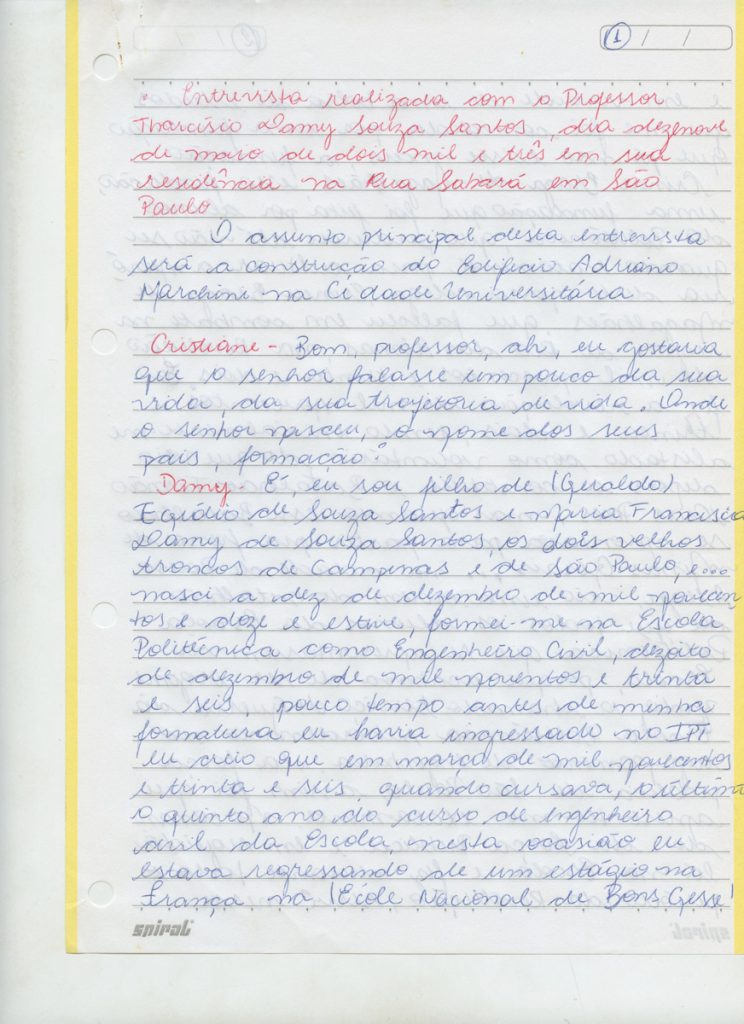 1 / /
Entrevista realizada com o Professor
Tharcísio Damy Souza Santos, dia dezenove
de maio de dois mil e três em sua
residência na Rua Sabará em São
Paulo
O assunto principal desta entrevista
será a construção do Edifício Adriano
Marchini na Cidade Universitária
Cristiane - Bom, professor, ah, eu gostaria
que o senhor falasse um pouco da sua
vida, da sua trajetória de vida. Onde
o senhor nasceu, o nome dos seus
pais, formação?
Damy - É, eu sou filho de (Geraldo)
Egídio de Souza Santos e Maria Francisca
Damy de Souza Santos, os dois velhos
troncos de Campinas e de São Paulo, e...
nasci a dez de dezembro de mil novecen
tos e doze e estive, formei-me na Escola
Politécnica como Engenheiro Civil, dezoito
de dezembro de mil noventos e trinta
e seis, pouco tempo antes de minha
formatura eu havia ingressado no IPT
eu creio que em março de mil novecentos
e trinta e seis, quando cursava, o últim
o quinto ano do curso de engenheiro
civil da Escola, nesta ocasião eu
estava regressando de um estágio na
França na (École Nacional de Bons Gesse)
spiral